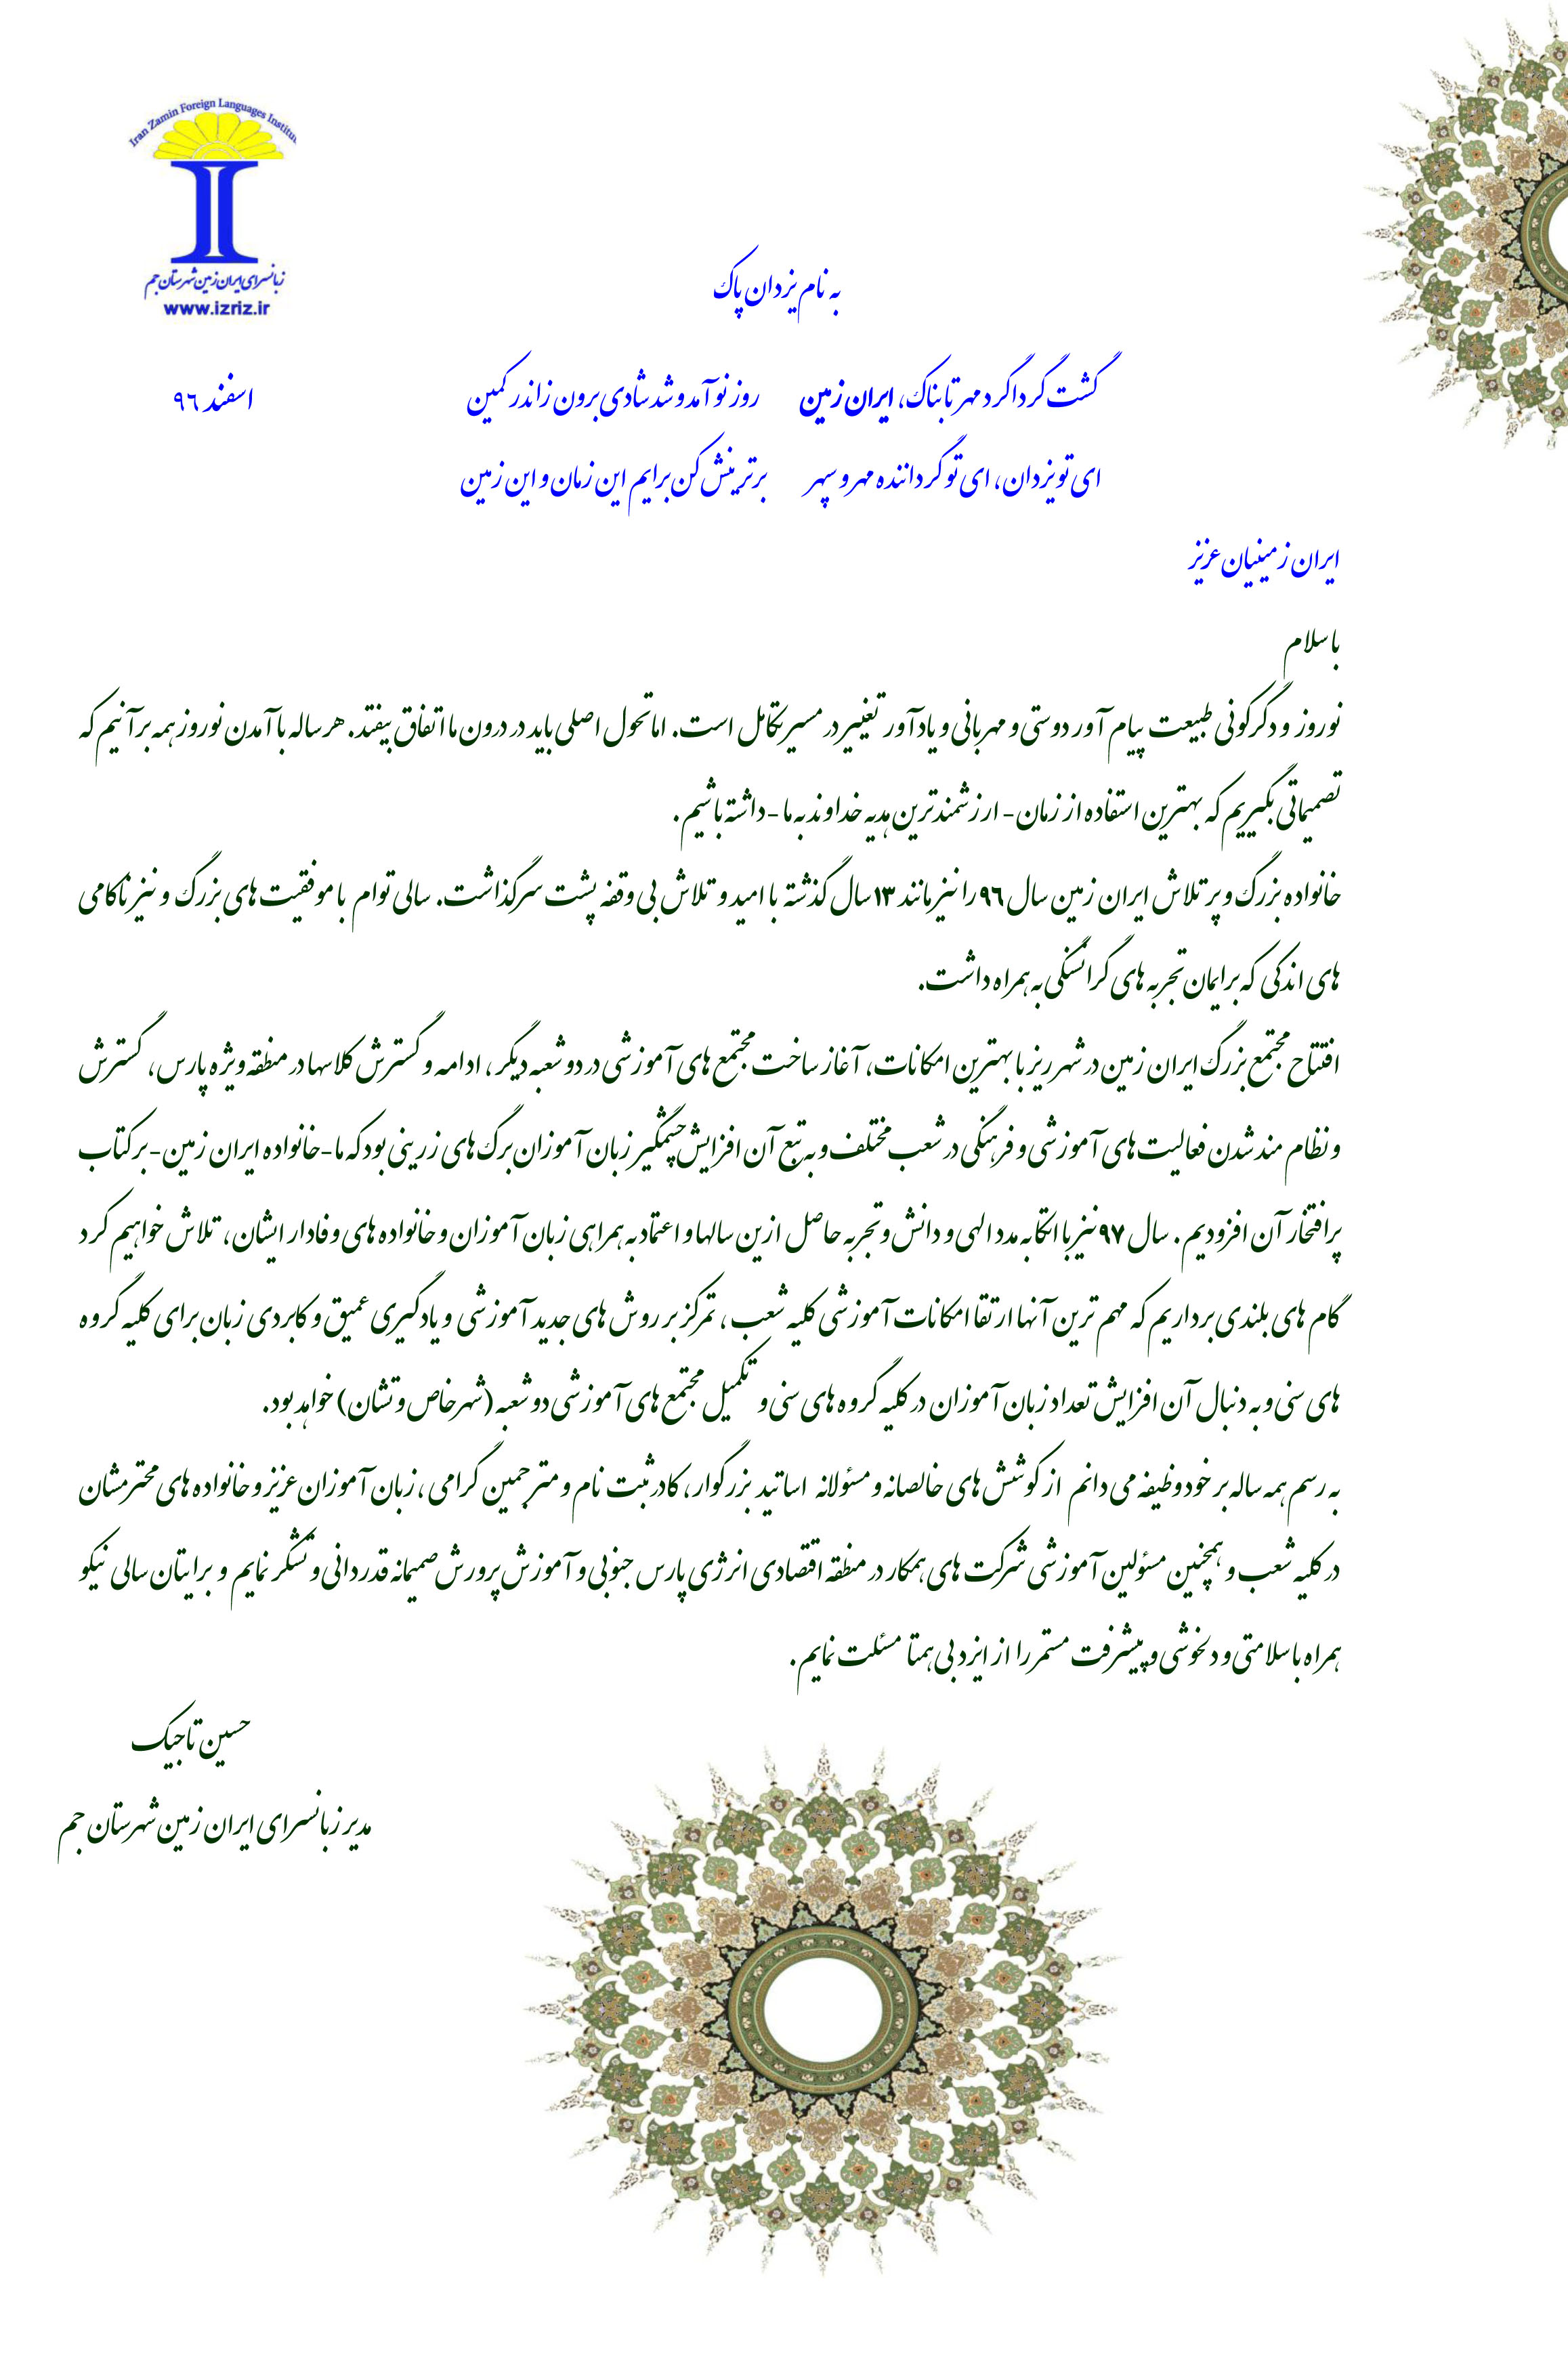 Iran Zamin Foreign Languages Institute
زبانسرای ایران زمین شهرستان جم
www.izriz.ir
به نام یزدان پاک
گشت گرداگرد مهر تابناک، ایران زمین روز نو آمد و شد شادی برون زاندر کمین
اسفند ۹۶
ای تو یزدان، ای تو گرداننده مهر و سپهر برترینش کن برایم این زمان و این زمین
ایران زمینیان عزیز
با سلام
نوروز و دگرگونی طبیعت پیام آور دوستی و مهربانی و یادآور تغییر در مسیر تکامل است. اما تحول اصلی باید در درون ما اتفاق بیفتد. هر ساله با آمدن نوروز همه برآنیم که
تصمیماتی بگیریم که بهترین استفاده از زمان- ارزشمندترین هدیه خداوند به ما - داشته باشیم.
خانواده بزرگ و پر تلاش ایران زمین سال ۹۶ را نیز مانند ۱۳ سال گذشته با امید و تلاش بی وقفه پشت سر گذاشت. سالی توام با موفقیت های بزرگ و نیز ناکامی
های اندکی که برایمان تجربه های گرانسنگی به همراه داشت.
افتتاح مجتمع بزرگ ایران زمین در شهر ریز با بهترین امکانات، آغاز ساخت مجتمع های آموزشی در دو شعبه دیگر، ادامه و گسترش کلاسها در منطقه ویژه پارس، گسترش
و نظام مند شدن فعالیت های آموزشی و فرهنگی در شعب مختلف و به تبع آن افزایش چشمگیر زبان آموزان برگ های زرینی بود که ما-خانواده ایران زمین- بر کتاب
پرافتخار آن افزودیم. سال ۹۷ نیز با اتکا به مدد الهی و دانش و تجربه حاصل ازین سالها و اعتماد به همراهی زبان آموزان و خانواده های وفادار ایشان، تلاش خواهیم کرد
گام های بلندی برداریم که مهم ترین آنها ارتقا امکانات آموزشی کلیه شعب، تمرکز بر روش های جدید آموزشی و یادگیری عمیق و کابردی زبان برای کلیه گروه
های سنی و به دنبال آن افزایش تعداد زبان آموزان در کلیه گروه های سنی و تکمیل مجتمع های آموزشی دو شعبه (شهرخاص و تشان) خواهد بود.
به رسم همه ساله بر خود وظیفه می دانم از کوشش های خالصانه و مسئولانه اساتید بزرگوار، کادر ثبت نام و مترجمین گرامی، زبان آموزان عزیز و خانواده های محترمشان
در کلیه شعب و همچنین مسئولین آموزشی شرکت های همکار در منطقه اقتصادی انرژی پارس جنوبی و آموزش پرورش صمیمانه قدردانی و تشکر نمایم و برایتان سالی نیکو
همراه با سلامتی و دلخوشی و پیشرفت مستمر را از ایزد بی همتا مسئلت نمایم.
حسین تاجیک
مدیر زبانسرای ایران زمین شهرستان جم